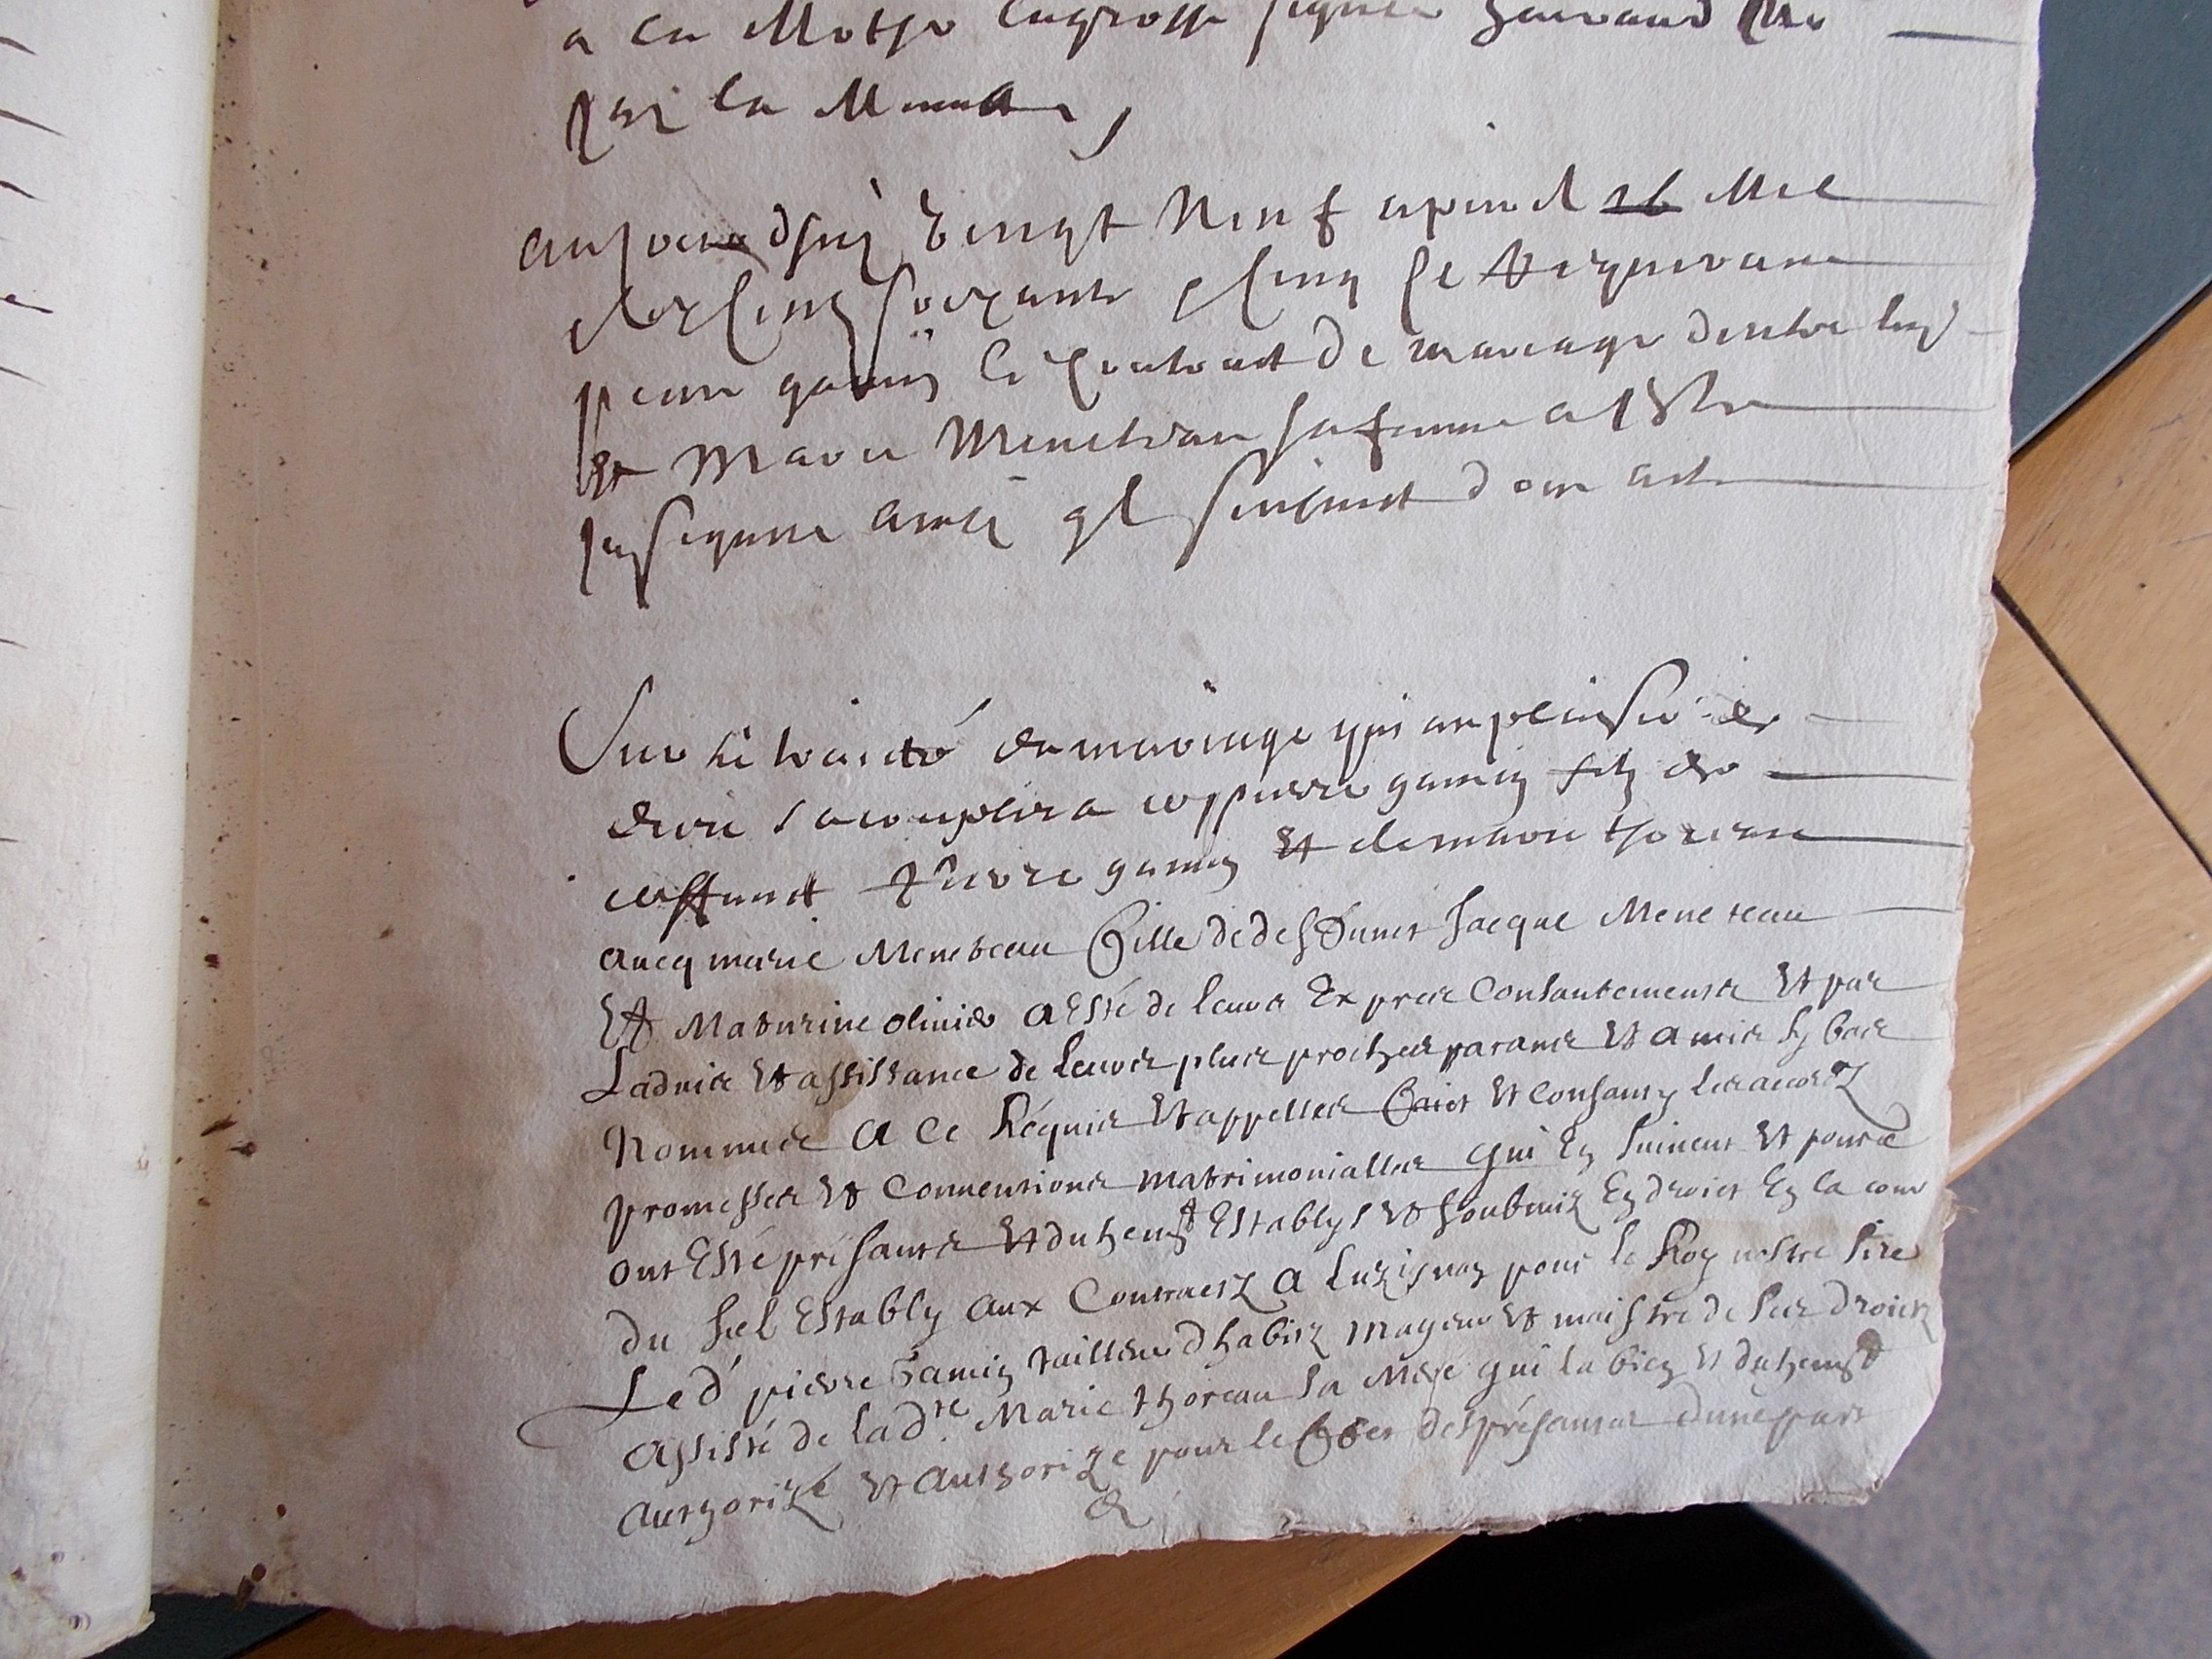 a la Mothe
par la
aujourdhuy vingt neuf apvril 16 Mil
six cens soixante et cinq ce requerant
pierre gamin le contrat de mariage dentre luy
et Marie Meneteau sa femme a este
insignue ainsi quil sensuict dont acte
Sur le traicté du mariage qui au plaisir de
dieu sacomplira pierre gamin filz de
deffunct Pierre gamin et de marie thoreau
auecq marie Meneteau fille de deffuncts Jacque Meneteau
Et Maturine oliuier a Esté de leurs Expres Consantements Et par
Laduis Et assistance de leurs plus proches parans Et amis Cy bas
Nommés a ce Réquis Et appellés faict Et Consanty les accordz
promesses Et Conuentions matrimonialles qui En suiuent Et pource
ont Esté présants Et duhemt Establys Et soubmis En droict En la cour
du scel Estably aux Contractz a Luzignan pour le Roy nostre sire
Led' pierre Gamin tailleur dhabitz mageur Et maistre de ses droictz
assisté de lad.te Marie thoreau sa Mere qui la bien Et duhemt
authorizé Et authorize pour leffect des présantes dune part
&